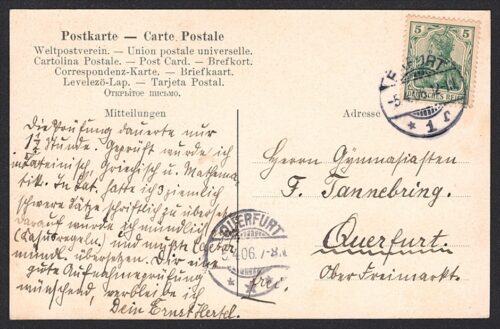 Postkarte — Carte Postale
Weltpostverein. — Union postale universelle.
Cartolina Postale. — Post Card. — Brefkort.
Correspondenz-Karte. — Briefkaart.
Levelező-Lap. — Tarjeta Postal.
Открытое письмо.
Mitteilungen
Adresse
Die Prüfung dauerte nur
1½ Stunde. Geprüft wurde ich
Lateinisch, Griechisch u. Mathema
tik. In Lat. hatte ich 3 ziemlich
schwere Sätze schriftlich zu übersetzen
Darauf wurde ich mündlich
(Casusregeln) und mußte Caesar
mündl. übersetzen. Dir eine
gute Aufnahmeprüfung
wünschend, verbleibe ich
Dein Ernst Hertel.
frei.
Herrn Gymnasiasten
F. Tannebring.
Querfurt.
Ober Freimarkt.
5 5
DEUTSCHES REICH
ERFURT
1
QUERFURT
5.4.06. 7-8.N